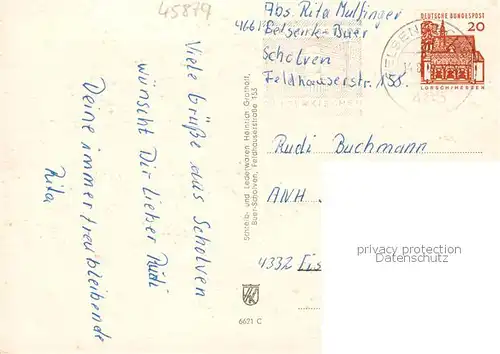 45879
Viele Grüße aus Scholven
wünscht Dir Lieber Rudi
Deine immer treubleibende
Rita
Schreib- und Lederwaren Heinrich Grothoff,
Buer-Scholven, Feldhauserstraße 155
6621 C
Abs Rita Mulfinger
466 Gelsenk.-Buer
Scholven
Feldhauserstr. 155.
DEUTSCHE BUNDESPOST
20
LORSCH/HESSEN
GELSENK
Rudi Buchmann
ANH.
4332
privacy protection
Datenschutz